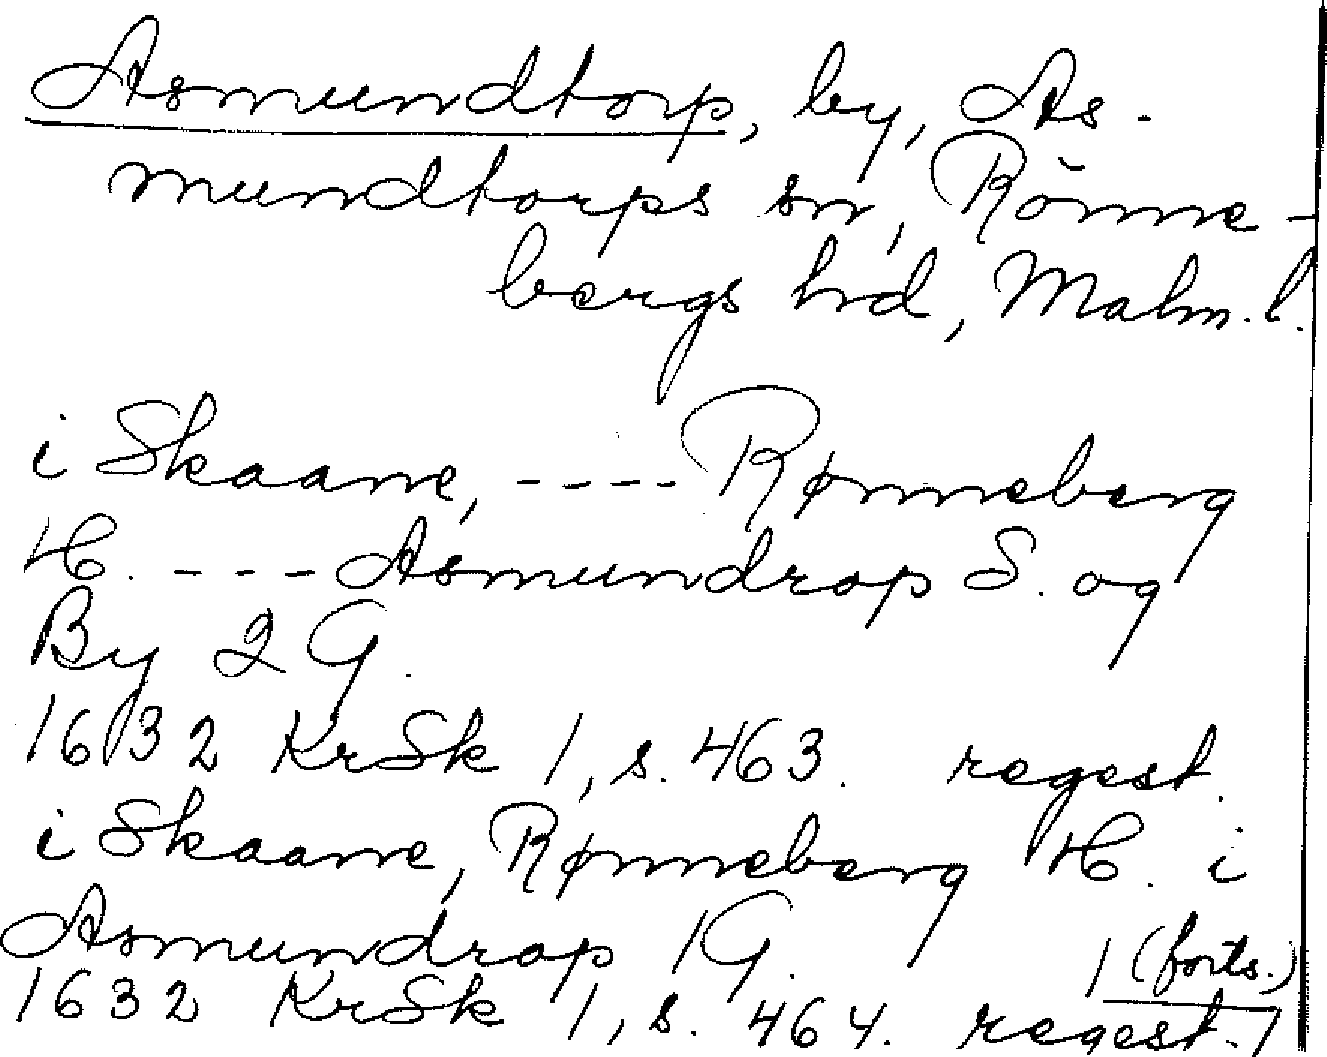 Asmundtorp, by, As-
mundtorps sn, Rönne-
bergs hd, Malm. l.
i Skaane, ---- Rønneberg
H. --- Asmundrop S. og
By 2 G.
1632 KrSk 1, s. 463. regest.
i Skaane, Rønneberg H. i
Asmundrop 1 G.
1 (forts.)
1632 KrSk 1, s. 464. regest.